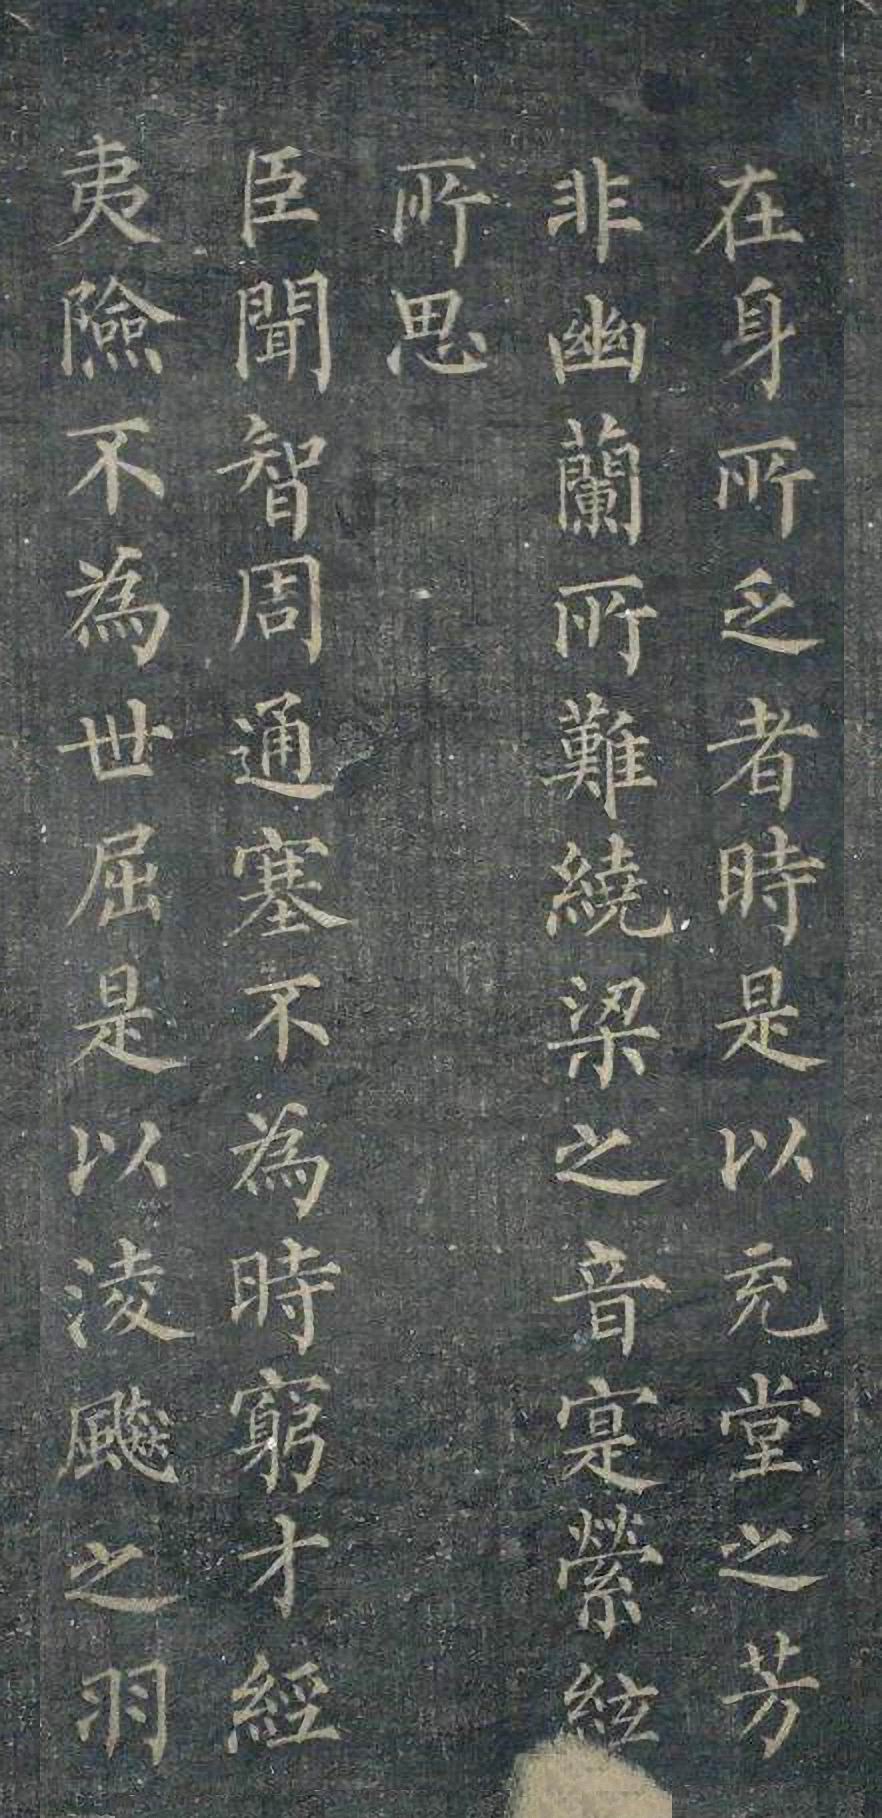 在身所乏者時是以充堂之芳
非幽蘭所難繞梁之音寔縈絃
所思
臣聞智周通塞不為時窮才經
夷險不為世屈是以淩飈之羽